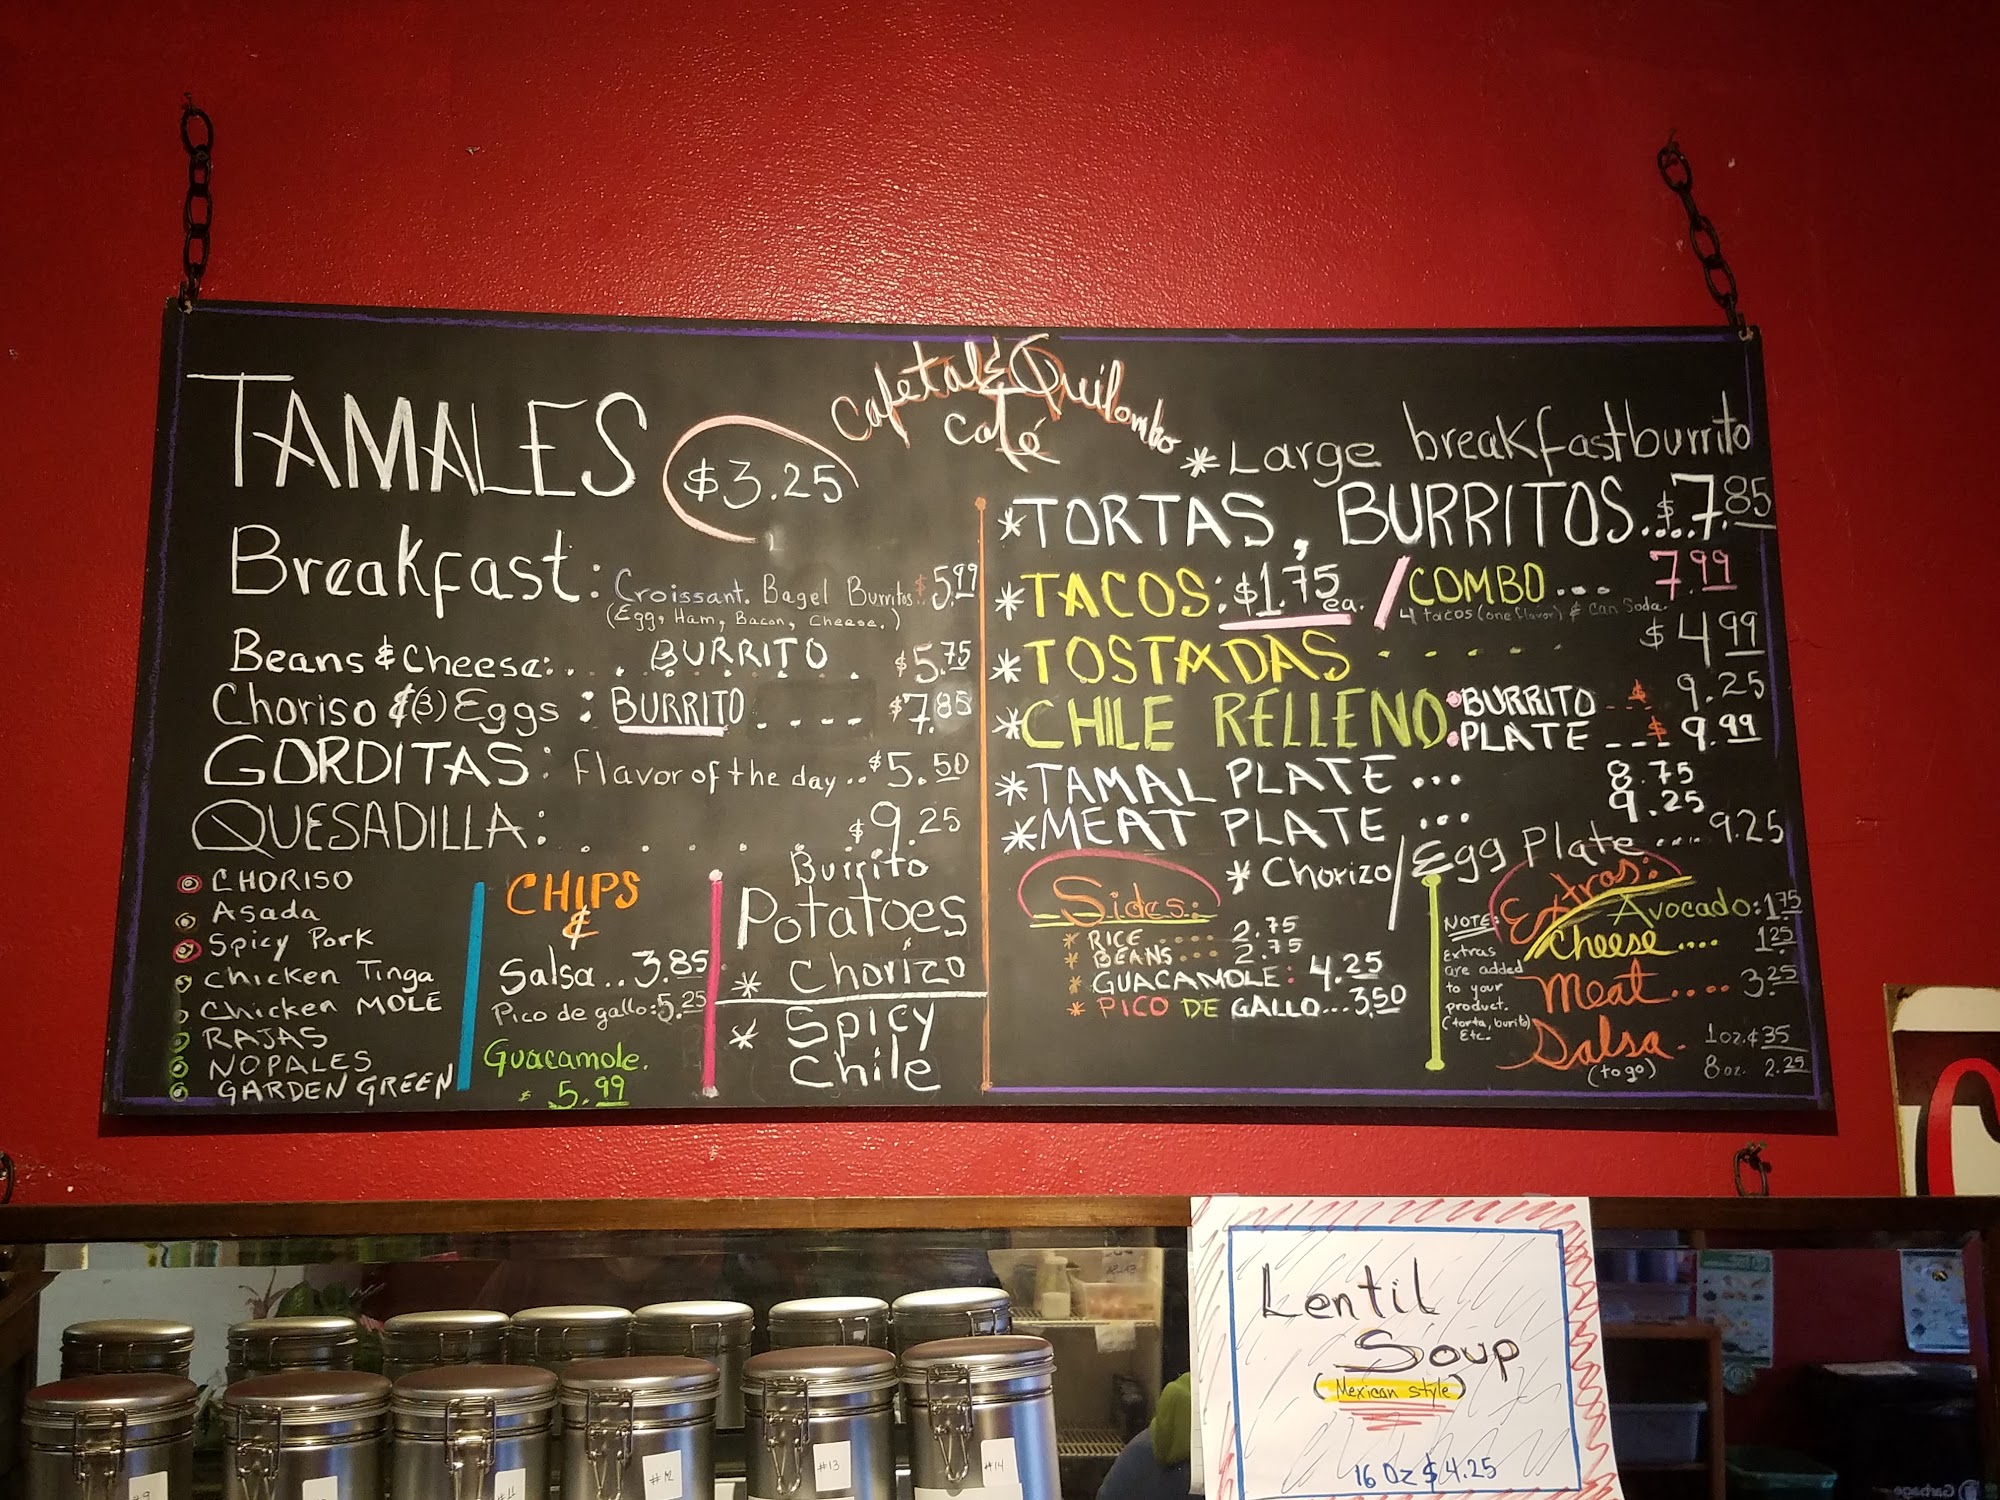 Cafetal & Quilombo
Café
TAMALES $3.25
Breakfast: Croissant. Bagel Burritos. $5.99
(Egg, Ham, Bacon, Cheese.)
Beans & Cheese:.. . BURRITO $5.75
Choriso & (3) Eggs : BURRITO. - - - - $7.85
GORDITAS: Flavor of the day.. $5.50
QUESADILLA: . . . . . $9.25
CHORISO
Asada
Spicy Pork
Chicken Tinga
Chicken MOLE
RAJAS
NOPALES
GARDEN GREEN
CHIPS
&
Salsa.. 3.85
Pico de gallo: 5.25
Guacamole.
$ 5.99
Burrito
Potatoes
* Chorizo
* Spicy
Chile
* Large breakfast burrito
* TORTAS, BURRITOS.... $7.85
* TACOS: $1.75 ea. / COMBO ... 7.99
4 tacos (one flavor) & Can Soda.
* TOSTADAS - - - - - - $4.99
* CHILE RELLENO • BURRITO - - $ 9.25
• PLATE - - - $ 9.99
* TAMAL PLATE ... 8.75
* MEAT PLATE ... 9.25
* Chorizo / Egg Plate .... 9.25
Sides:
* RICE .... 2.75
* BEANS... 2.75
* GUACAMOLE: 4.25
* PICO DE GALLO... 3.50
NOTE:
Extras
are added
to your
product.
(torta, burito)
Etc.
Extras:
Avocado: 1.75
Cheese .... 1.25
Meat .... 3.25
Salsa. 1oz. ¢35
(to go) 8oz. 2.25
Lentil
Soup
(Mexican style)
16 Oz $4.25
#11
#12
#13
#14
Garbage